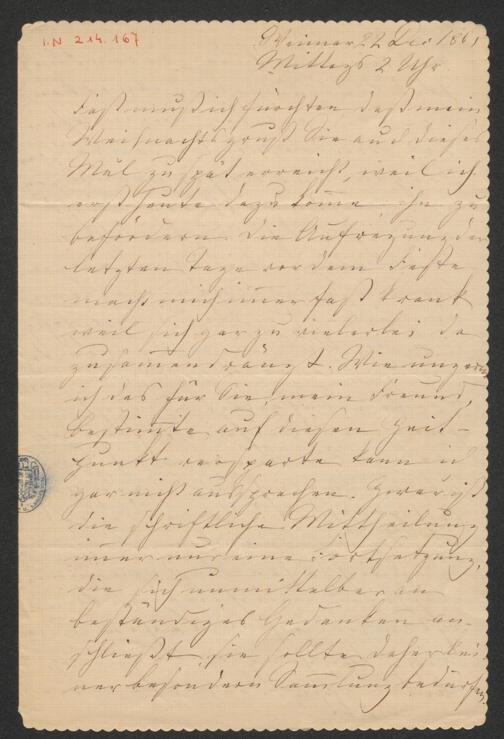 I.N 214.167
Weimar 22 Dec 186
Mittags 2 Uhr.
Fast muß ich fürchten daß mein
Weihnachtsgruß Sie auch dieses
Mal zu spät erreicht, weil ich
erst heute dazu komme ihn zu
befördern. Die Aufregung der
letzten Tage vor dem Feste
macht mich immer fast krank
weil sich gar zu vielerlei da
zusammendrängt. Wie ungern
ich das für Sie, mein Freund,
bestimte auf diesen Zeit-
punkt versparte kann ich
gar nicht aussprechen. Zwar ist
die schriftliche Mittheilung
immer nur eine Fortsetzung,
die sich unmittelbar an
beständiges Gedenken an-
schließt, sie sollte daher kei-
ner besondern Samlung bedürfen,